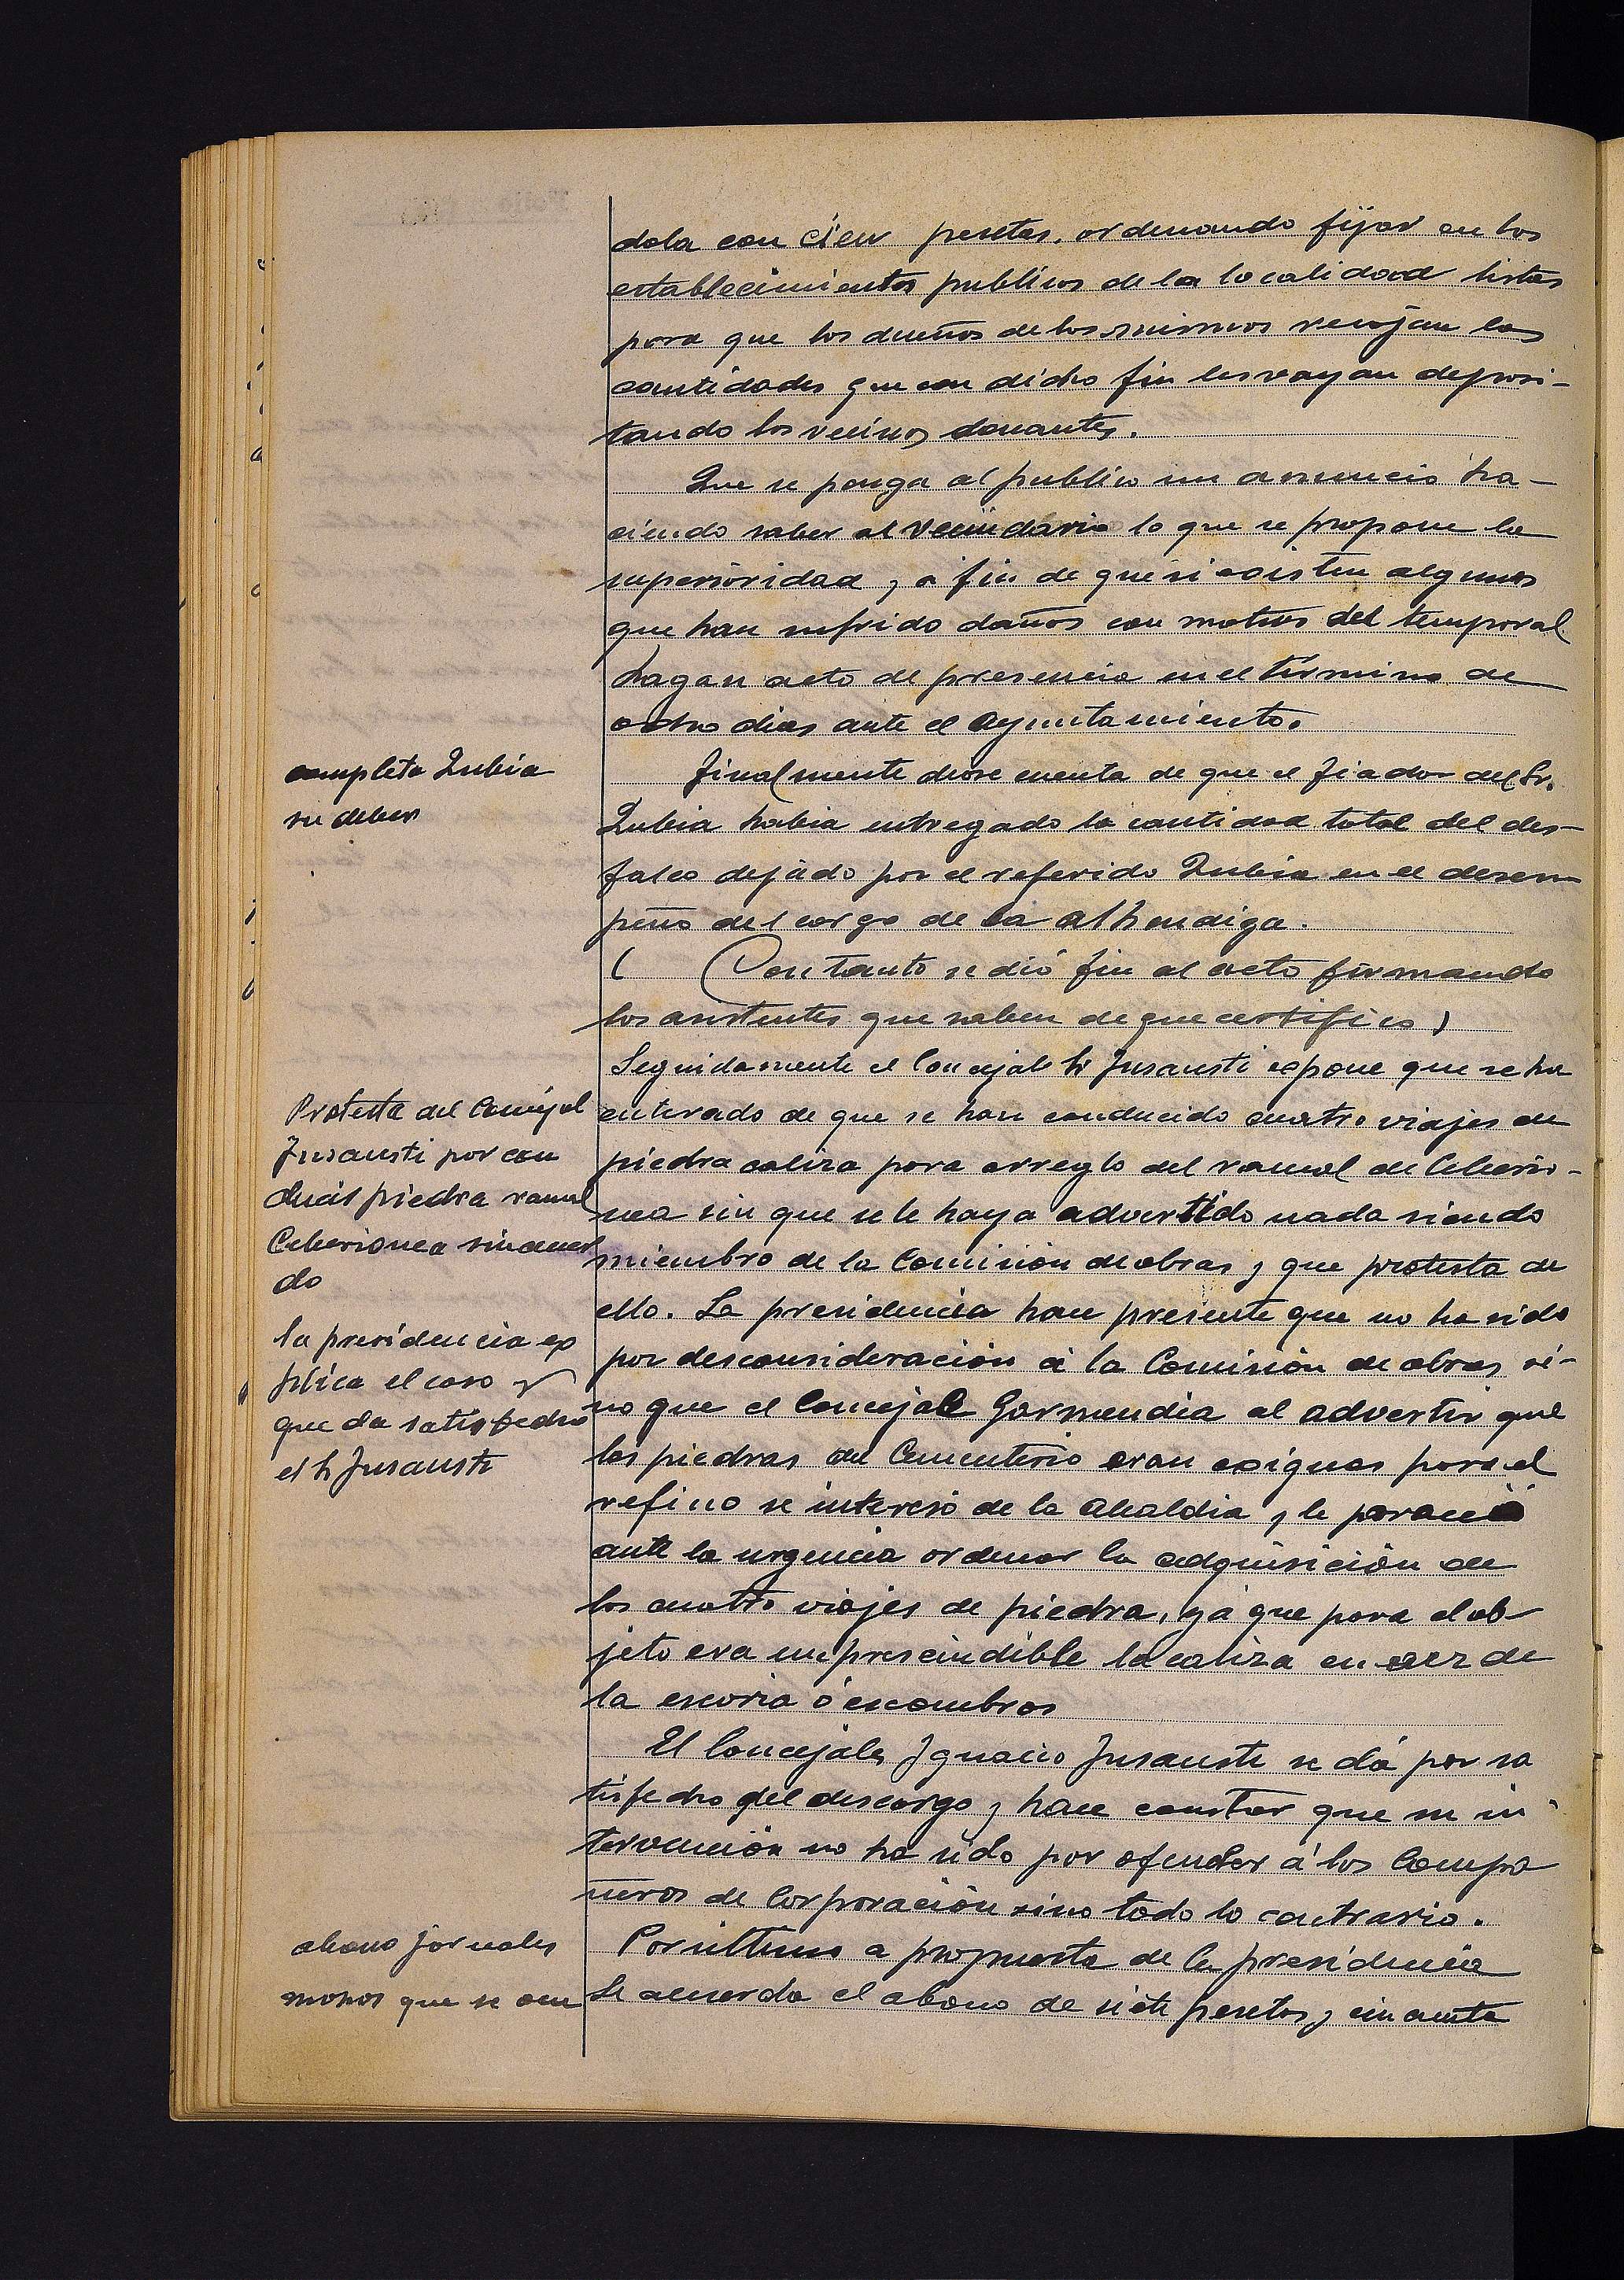 dola con cien pesetas, ordenando fijar en los
establecimientos publicos de la localidad listas
para que los dueños de los mismos recojan las
cantidades que con dicho fin les vayan deposi-
tando los vecinos donantes.
Que se ponga al publico un anuncio ha-
ciendo saber al vecindario lo que se propone la
superioridad, a fin de que si existen algunos
que han sufrido daños con motivo del temporal
hagan acto de presencia en el término de
ocho dias ante el Ayuntamiento.
completa Zubia
su deber
Finalmente diose cuenta de que el fiador del Sr.
Zubia habia entregado la cantidad total del des-
falco dejado por el referido Zubia en el desem
peño del cargo de la alhondiga.
( Con tanto se dió fin al acto firmando
los asistentes que saben de que certifico)
Seguidamente el Concejal Sr Jusausti expone que se ha
enterado de que se han conducido cuatro viajes de
piedra caliza para arreglo del ramal de Ceberio-
nea sin que se le haya advertido nada siendo
miembro de la Comisión de obras y que protesta de
ello. La presidencia hace presente que no ha sido
por desconsideración á la Comisión de obras si-
no que el Concejal Garmendia al advertir que
las piedras del Cementerio eran exiguas para el
refino se interesó de la Alcaldia, le pareció
ante la urgencia ordenar la adquisición de
los cuatro viajes de piedra, ya que para el ob-
jeto era imprescindible la caliza en vez de
la escoria ó escombros
Protesta del Concejal
Jusausti por con
ducir piedra ramal
Ceberionea sin acuer
do
la presidencia ex
plica el caso y
queda satisfecho
el Sr Jusausti
El Concejal Ignacio Jusausti se dá por sa
tisfecho del descargo y hace constar que su in
tervención no ha sido por ofender á los Compa
ñeros de Corporación sino todo lo contrario.
abono jornales
monos que se ocu
Por ultimo a propuesta de la presidencia
se acuerda el abono de siete pesetas, cincuenta